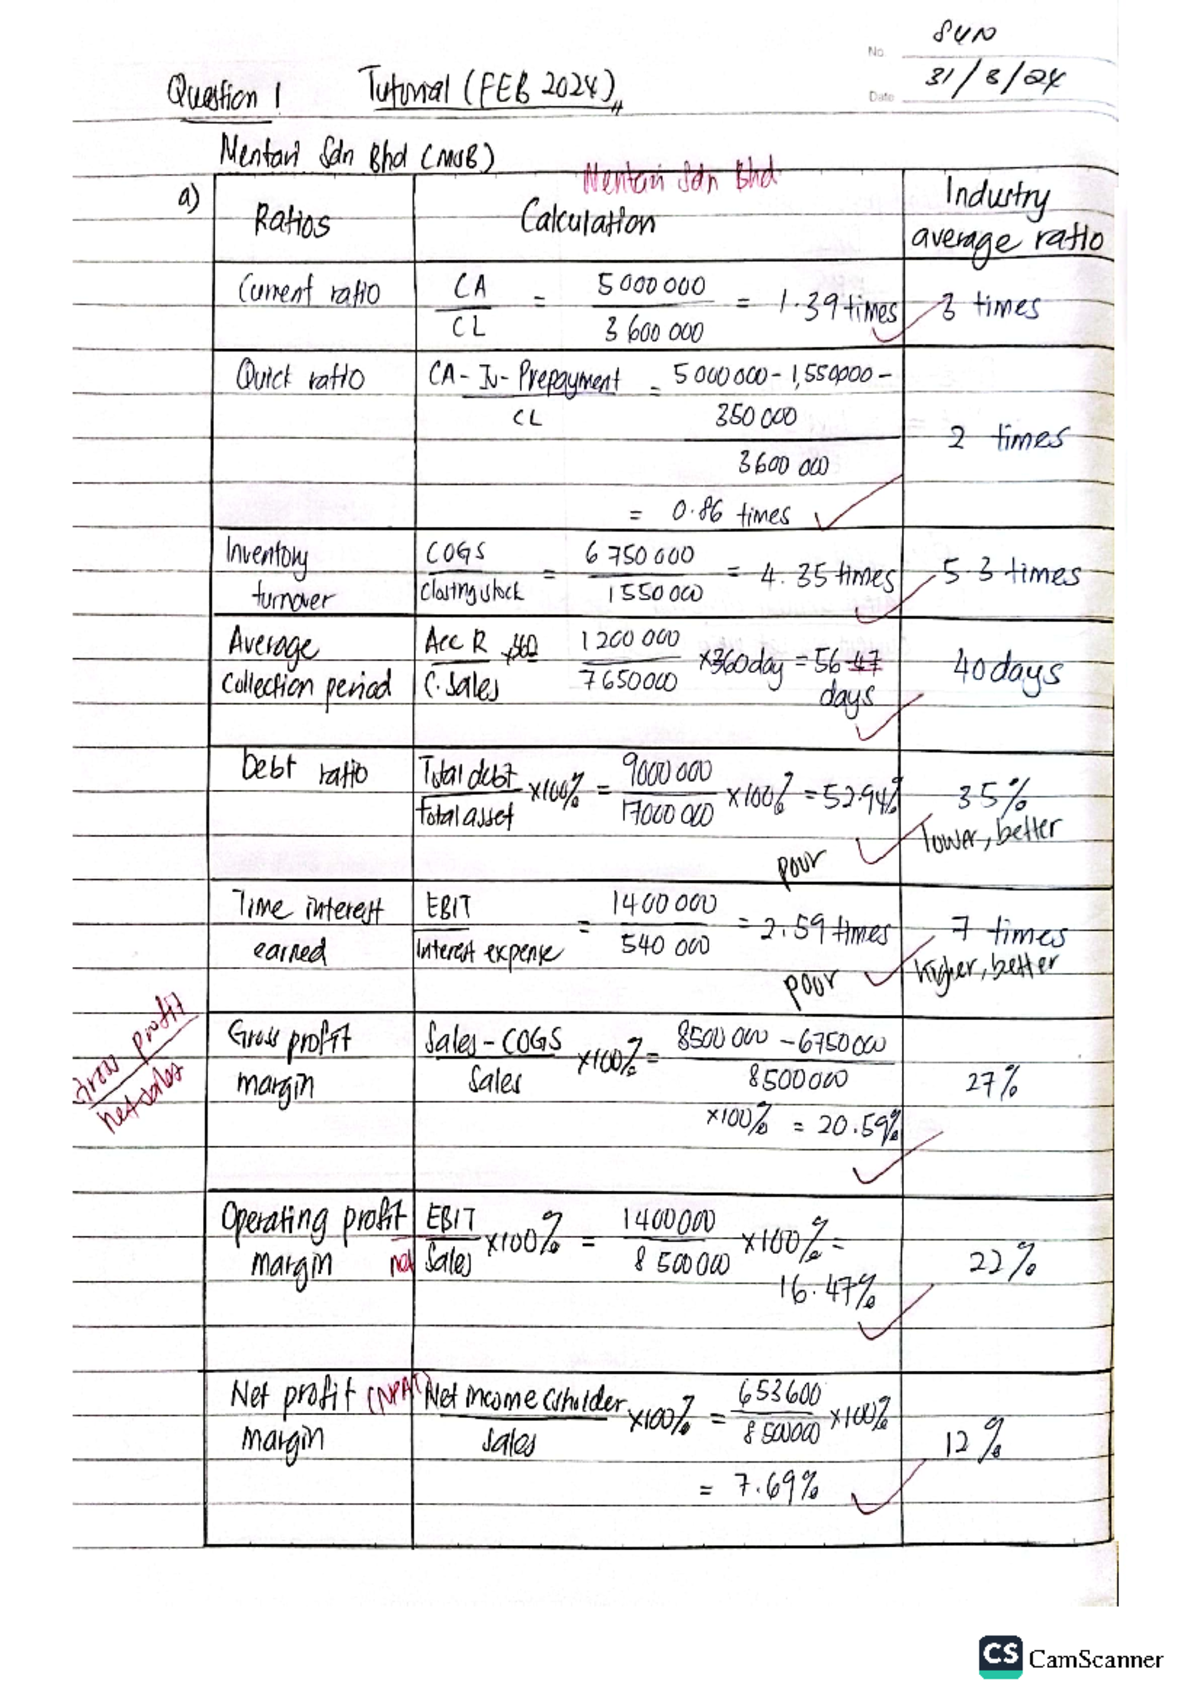 No. SUN
Question 1 Tutorial (FEB 2024)
Date 31/3/24
Mentari Sdn Bhd (MSB)
Mentari Sdn Bhd
a) Ratios Calculation Industry average ratio
Current ratio CA / CL = 5 000 000 / 3 600 000 = 1.39 times 3 times
Quick ratio CA - Iv - Prepayment / CL = 5 000 000 - 1,550 000 - 350 000 / 3 600 000
= 0.86 times 2 times
Inventory turnover COGS / Closing stock = 6 750 000 / 1 550 000 = 4.35 times 5.3 times
Average collection period Acc R / C. Sales x 360 1 200 000 / 7 650 000 x 360 day = 56.47 days 40 days
Debt ratio Total debt / Total asset x 100% = 9 000 000 / 17 000 000 x 100% = 52.94% 35%
poor lower, better
Time interest earned EBIT / Interest expense = 1 400 000 / 540 000 = 2.59 times 7 times
poor higher, better
Gross profit / Net sales
Gross profit margin Sales - COGS / Sales x 100% = 8 500 000 - 6 750 000 / 8 500 000 27%
x 100% = 20.59%
Operating profit margin EBIT / net Sales x 100% = 1 400 000 / 8 500 000 x 100% = 22%
16.47%
Net profit (NPAT) margin Net income C/sholder / Sales x 100% = 653 600 / 8 500 000 x 100% 12%
= 7.69%
CS CamScanner